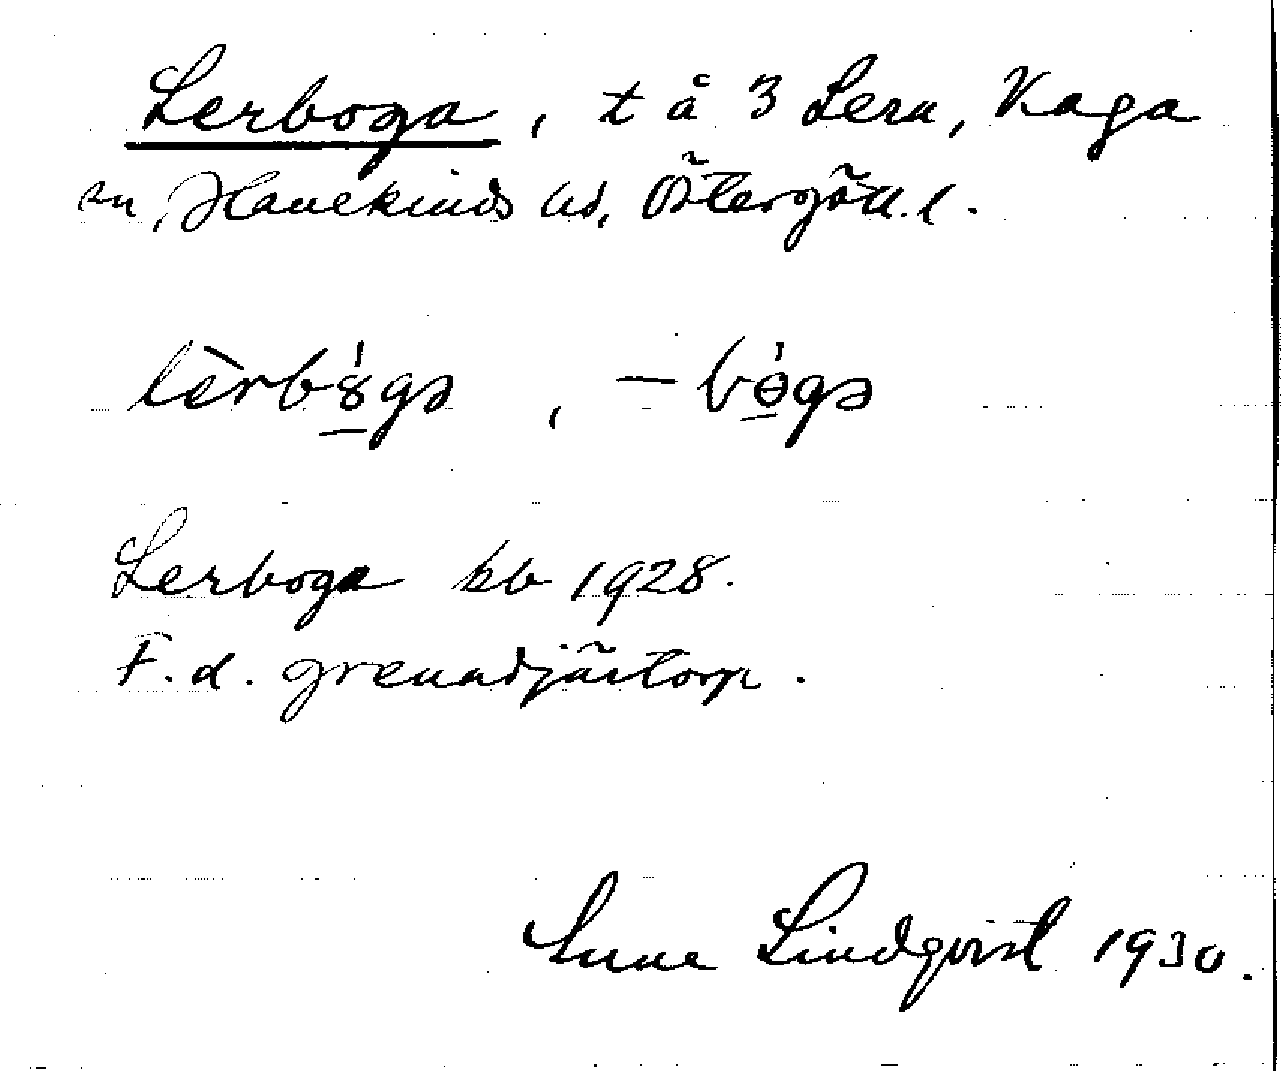 Lerboga, t å 3 Lera, Kaga
sn, Hanekinds hd, Östergötl. l.
lèrb8́gə, –bɵ́gə
Lerboga kb 1928.
F. d. grenadjärtorp.
Sune Lindqvist 1930.